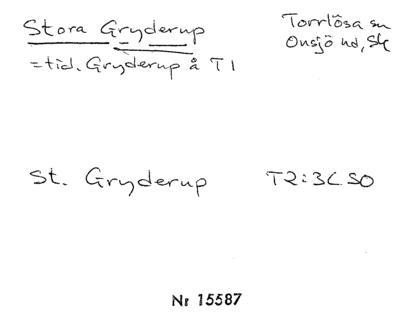 Stora Gryderup
Torrlösa sn
Onsjö hd, Sk
= tid. Gryderup å T1
St. Gryderup T2:3C SO
Nr 15587